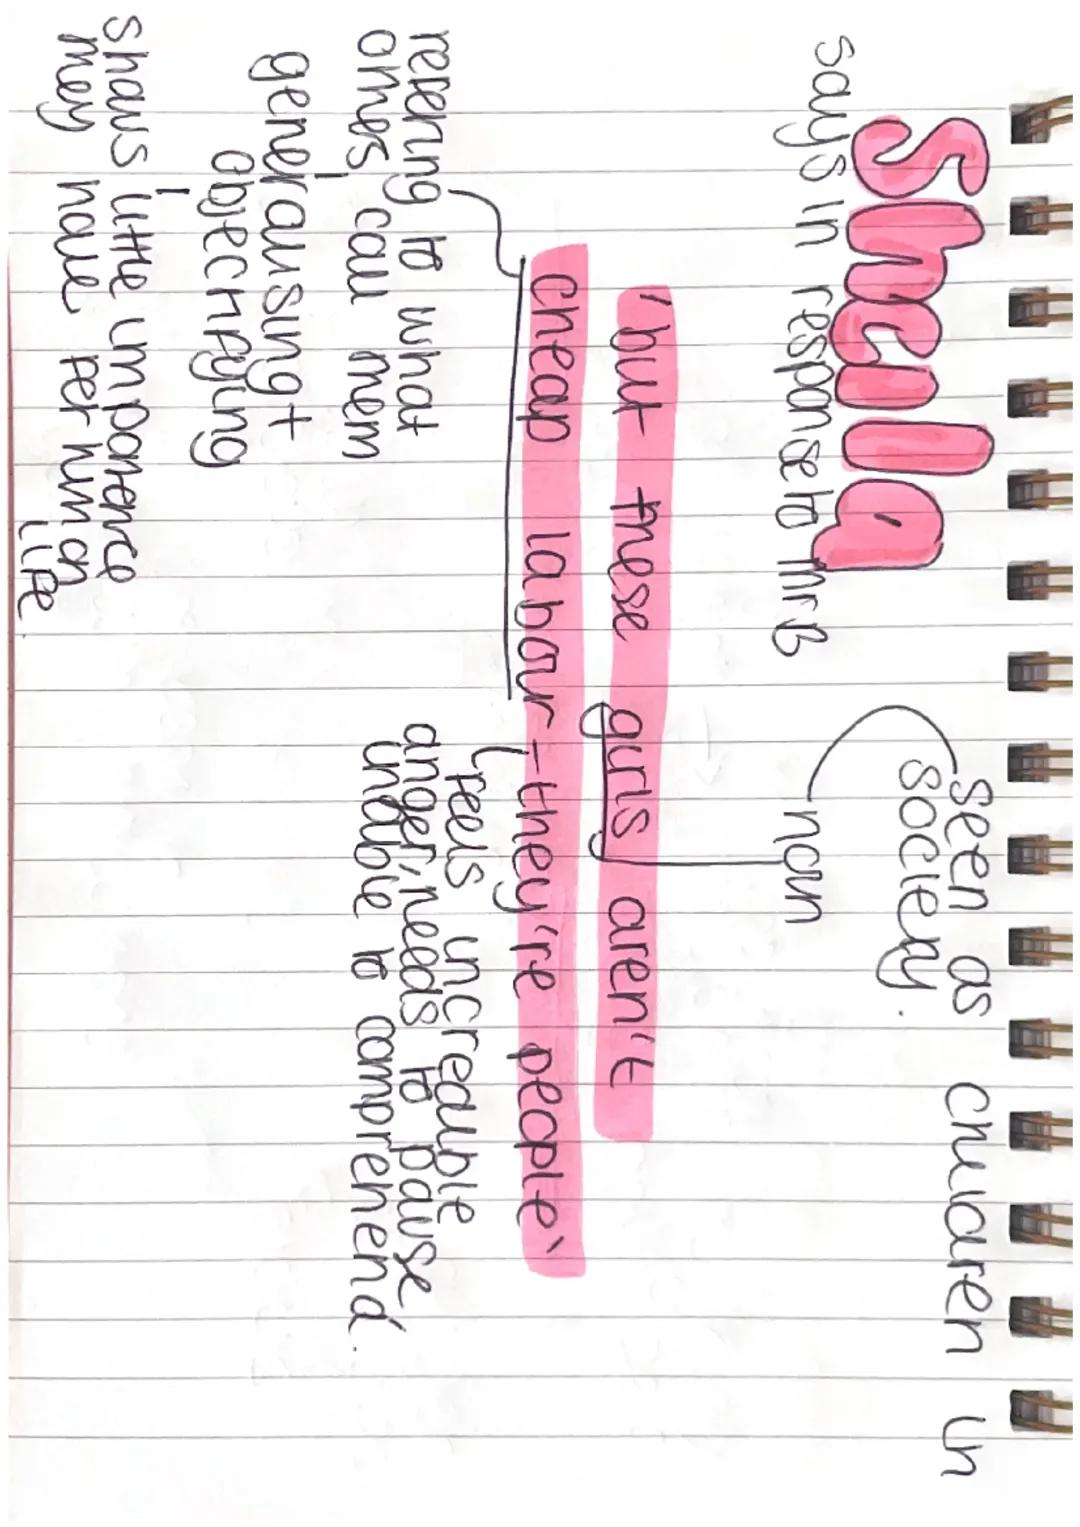 Sheila
says in response to Mr B
seen as children in
society.
noun
'but these girls aren't
cheap labour - they're people'
refering to what
others call them
generalising +
objectifying
shows little importance
they have per human
life.
feels increduble
anger, needs to pause
unable to comprehend.